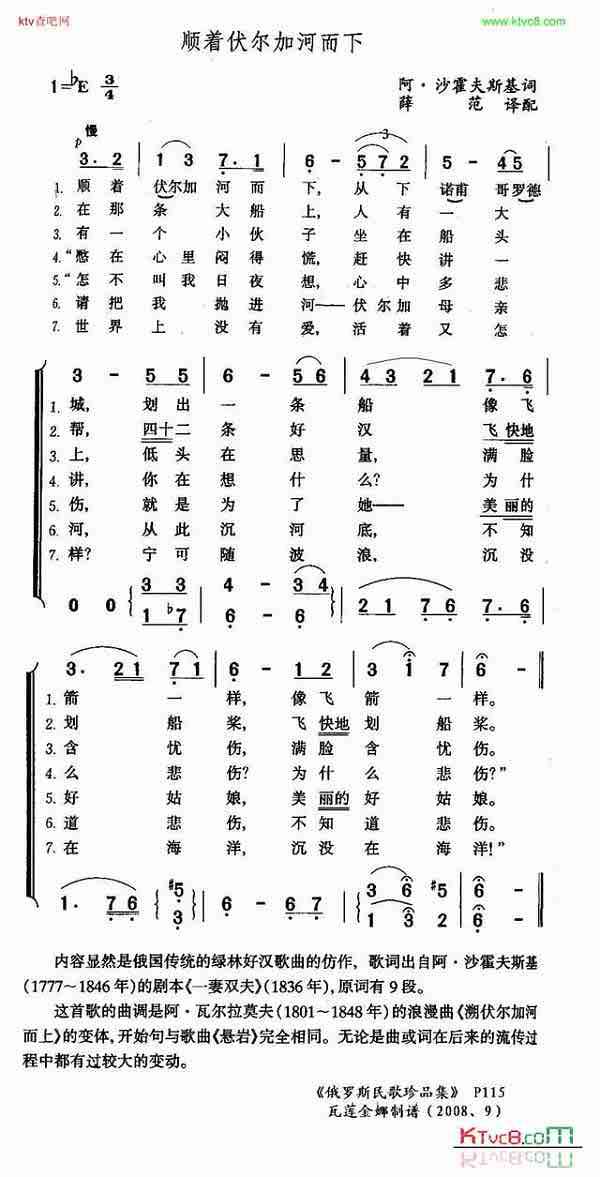 ktv查吧网
www.ktvc8.com
顺着伏尔加河而下
1=♭E 3/4
阿·沙霍夫斯基词
薛 范 译配
慢
p
3
3·2 | 1 3 7·1 | 6 - 572 | 5 - 45 |
1. 顺着 伏尔加 河而 下, 从下 诺甫 哥罗德
2. 在那 条 大船 上, 人有 一 大
3. 有一 个 小伙 子 坐在 船 头
4.“憋在 心里 闷得 慌, 赶快 讲 一
5.“怎不 叫我 日夜 想, 心中 多 悲
6. 请把 我 抛进 河——伏尔加 母 亲
7. 世界 上 没有 爱, 活着 又 怎
3 - 5 5 | 6 - 5 6 | 4 3 2 1 7·6 |
1. 城, 划出 一 条 船 像飞
2. 帮, 四十二 条 好 汉 飞快地
3. 上, 低头 在 思 量, 满脸
4. 讲, 你在 想 什 么? 为什
5. 伤, 就是 为 了 她—— 美丽的
6. 河, 从此 沉 河 底, 不知
7. 样? 宁可 随 波 浪, 沉没
0 0 3 3 | 4 - 3 4 | 2 1 7 6 7·6 |
1 ♭7 | 6 - 6
3· 21 71 | 6 - 1 2 | 3 1 7 | 6 - ‖
1. 箭 一 样, 像飞 箭 一 样。
2. 划 船 桨, 飞快地 划 船 桨。
3. 含 忧 伤, 满脸 含 忧 伤。
4. 么 悲 伤? 为什 么 悲 伤?”
5. 好 姑 娘, 美丽的 好 姑 娘。
6. 道 悲 伤, 不知 道 悲 伤。
7. 在 海 洋, 沉没 在 海 洋!”
1· 7 6 #5 | 6 - 6 7 | 3 6 #5 | 6 - ‖
3 | 1 3 2
内容显然是俄国传统的绿林好汉歌曲的仿作，歌词出自阿·沙霍夫斯基
(1777～1846 年)的剧本《一妻双夫》(1836 年),原词有 9 段。
这首歌的曲调是阿·瓦尔拉莫夫(1801～1848 年)的浪漫曲《溯伏尔加河
而上》的变体,开始句与歌曲《悬岩》完全相同。无论是曲或词在后来的流传过
程中都有过较大的变动。
《俄罗斯民歌珍品集》 P115
瓦莲金娜制谱(2008、9)
KTvc8.com